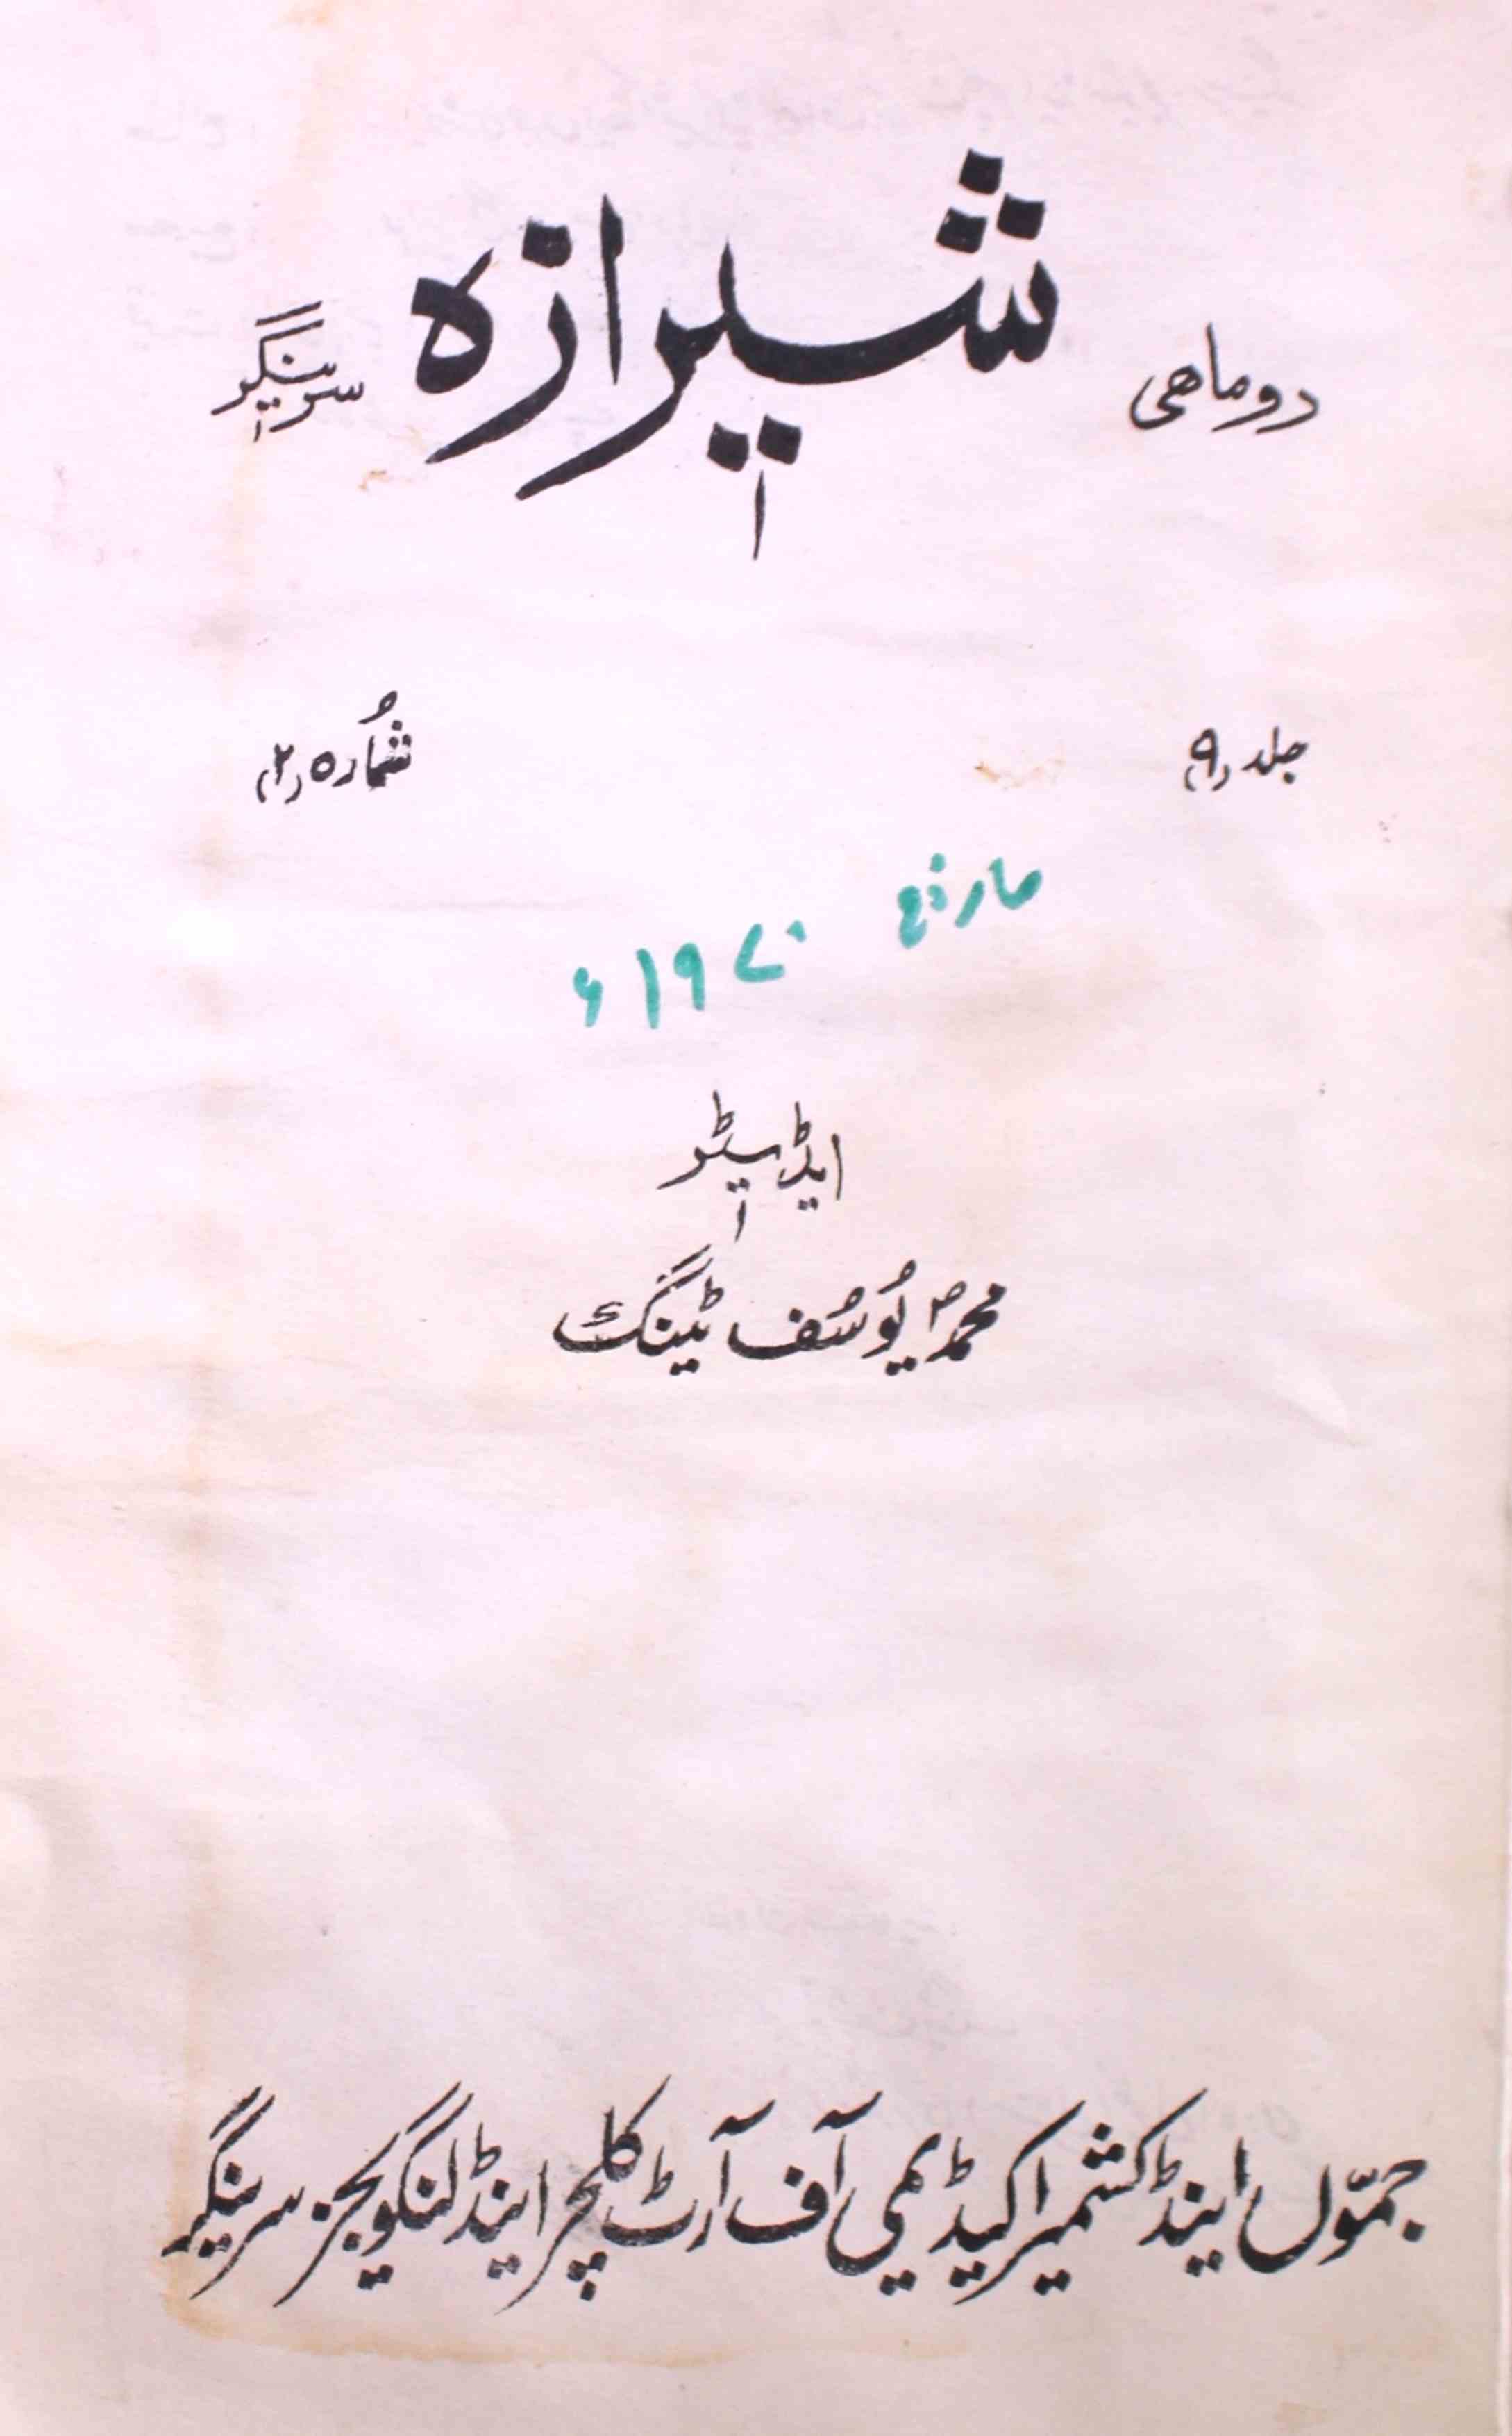 دوماهی شیرازہ سرینگر
جلد (۹) شُمارہ (۲)
مارچ ۱۹۷۰ء
ایڈیٹر
محمدؐ یُوسُف ٹینگ
جمّوں اینڈ کشمیر اکیڈیمی آف آرٹ کلچر اینڈ لنگویجز سرینگر